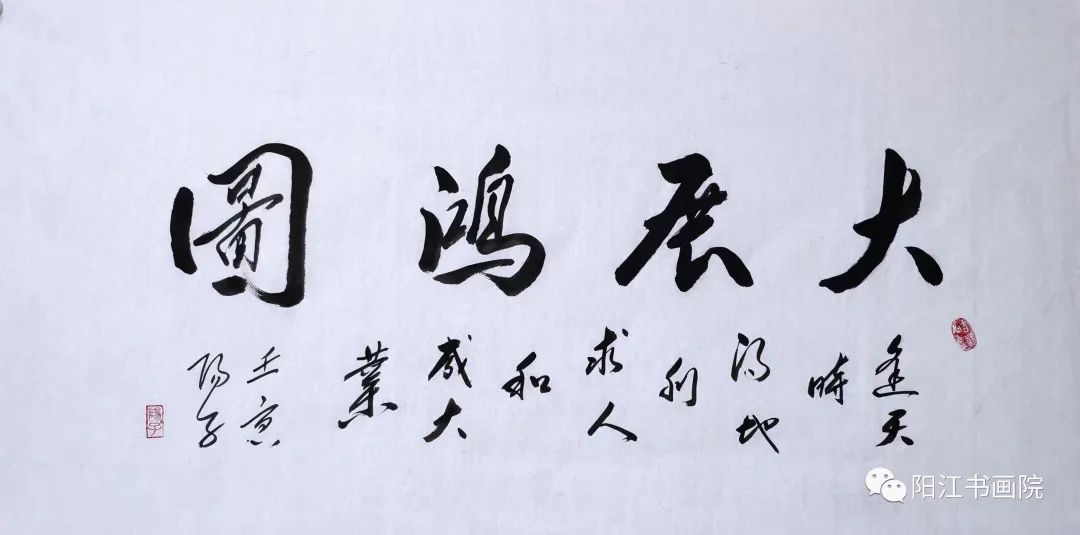 大展鴻圖
逢天時
得地利
求人和
成大業
壬寅
陽子
阳江书画院